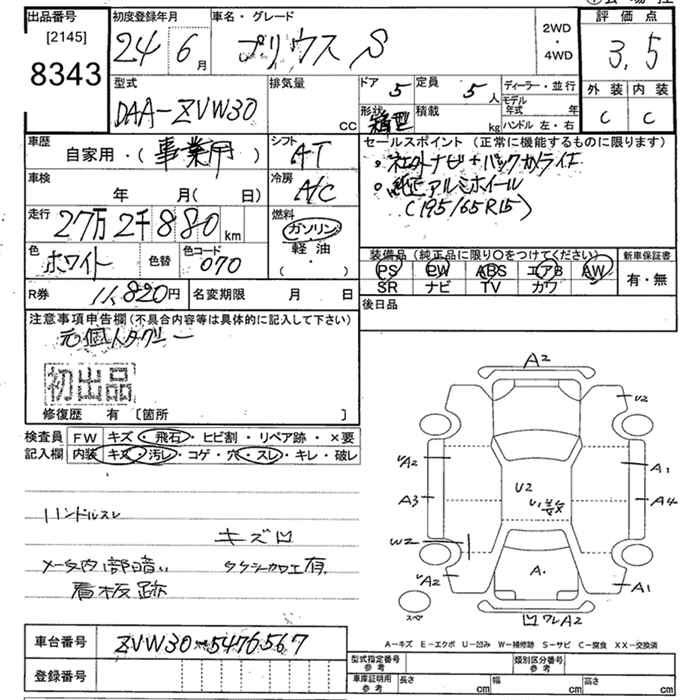 出品番号
[2145]
8343
初度登録年月
24 6月
車名・グレード
プリウス S
2WD
・
4WD
評価点
3.5
外装 内装
C C
型式
DAA-ZVW30
排気量
CC
ドア 5
定員 5人
形状 箱型
積載 kg
ディーラー・並行
モデル年式 年
ハンドル 左・右
車歴
自家用・(事業用)
シフト
AT
車検
年 月( 日)
冷房
A/C
走行
27万2千880km
燃料
ガソリン
軽油
( ・ )
色
ホワイト
色替
色コード
070
R券 11,820円
名変期限 月 日
セールスポイント(正常に機能するものに限ります)
・ナビ+バックカメラ
・純正アルミホイール
(195/65R15)
装備品(純正品に限り○をつけてください)
PS PW ABS エアB AW
SR ナビ TV カワ
新車保証書
有・無
後日品
注意事項申告欄(不具合内容等は具体的に記入して下さい)
元個人タクシー
初出品
修復歴 有 [箇所 ]
検査員
記入欄
FW キズ・飛石・ヒビ割・リペア跡・×要
内装 キズ・汚レ・コゲ・穴・スレ・キレ・破レ
ハンドルスレ
キズ凹
メータ内部暗い タクシー加工有
看板跡
A2
U2
A2
A1
A3
U2
A4
W2
A2
A.
A1
スペ
凹ワレA2
A-キズ E-エクボ U-凹み W-補修跡 S-サビ C-腐食 XX-交換済
車台番号 ZVW30-5476567
登録番号
型式指定番号
参考
類別区分番号
参考
車庫証明用
参考
長さ cm
幅 cm
高さ cm